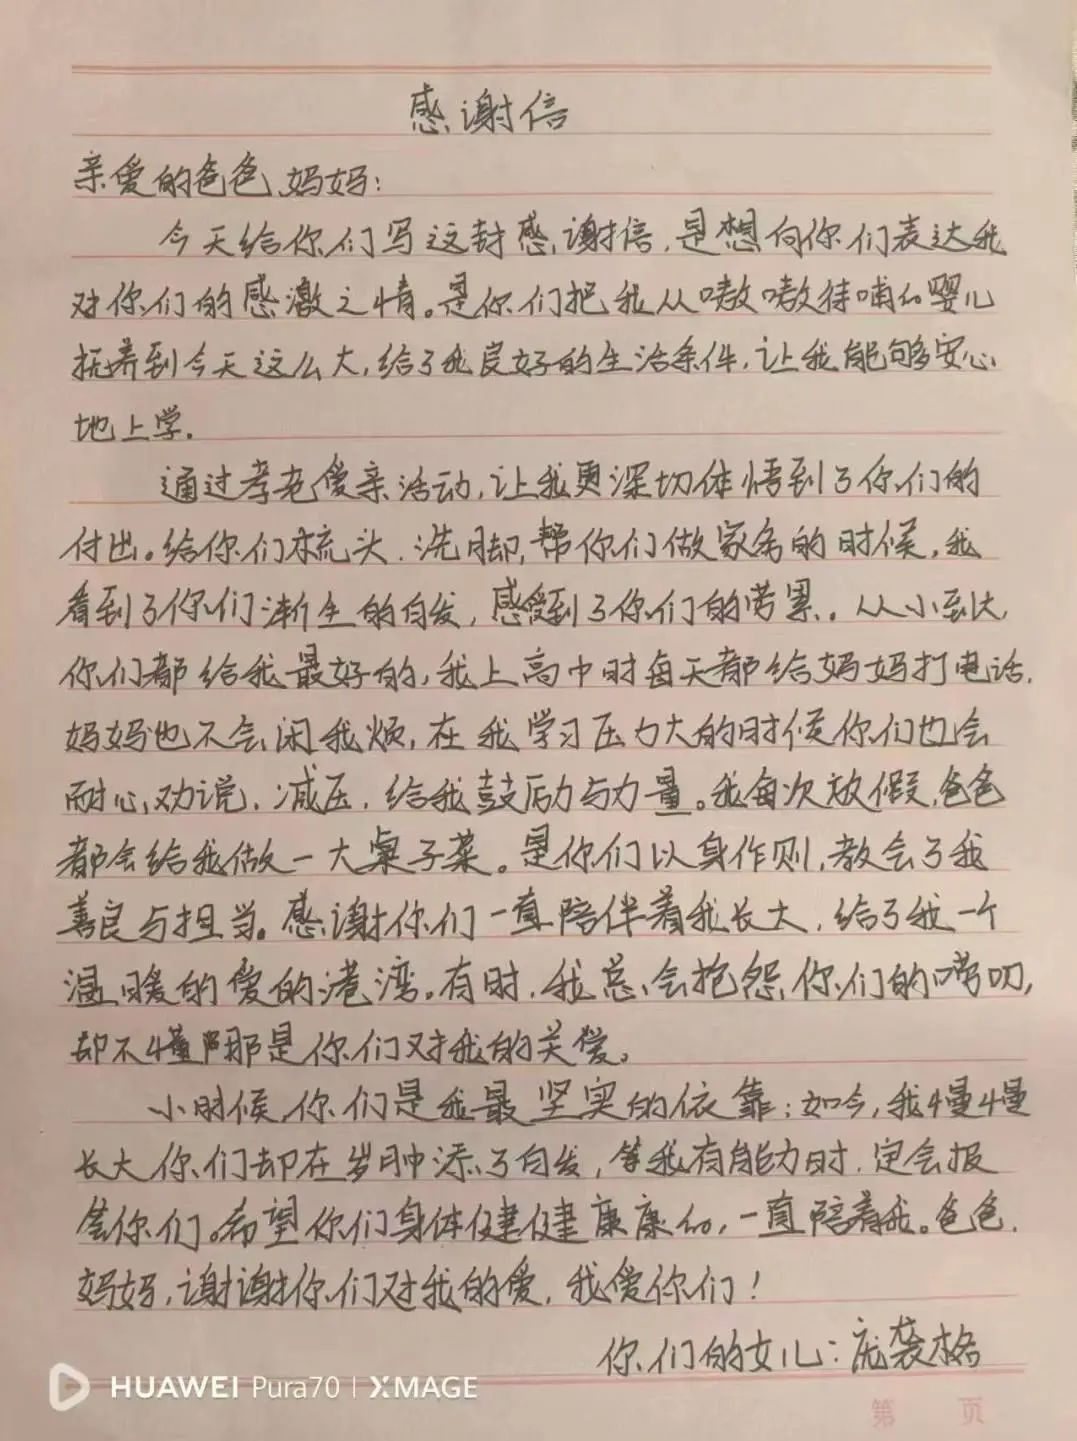 感谢信
亲爱的爸爸、妈妈：
今天给你们写这封感谢信，是想向你们表达我
对你们的感激之情。是你们把我从嗷嗷待哺的婴儿
抚养到今天这么大，给了我良好的生活条件，让我能够安心
地上学。
通过孝老爱亲活动，让我更深切体悟到了你们的
付出。给你们梳头、洗脚，帮你们做家务的时候，我
看到了你们渐生的白发，感受到了你们的劳累。从小到大，
你们都给我最好的，我上高中时每天都给妈妈打电话，
妈妈也不会闲我烦，在我学习压力大的时候你们也会
耐心劝说，减压，给我鼓励与力量。我每次放假，爸爸
都会给我做一大桌子菜。是你们以身作则，教会了我
善良与担当。感谢你们一直陪伴着我长大，给了我一个
温暖的爱的港湾。有时，我总会抱怨你们的唠叨，
却不懂那是你们对我的关爱。
小时候，你们是我最坚实的依靠；如今，我慢慢
长大你们却在岁月中添了白发，等我有能力时，定会报
答你们。希望你们身体健健康康的，一直陪着我。爸爸、
妈妈，谢谢你们对我的爱，我爱你们！
你们的女儿：庞袭格
HUAWEI Pura70 | XMAGE
第 页